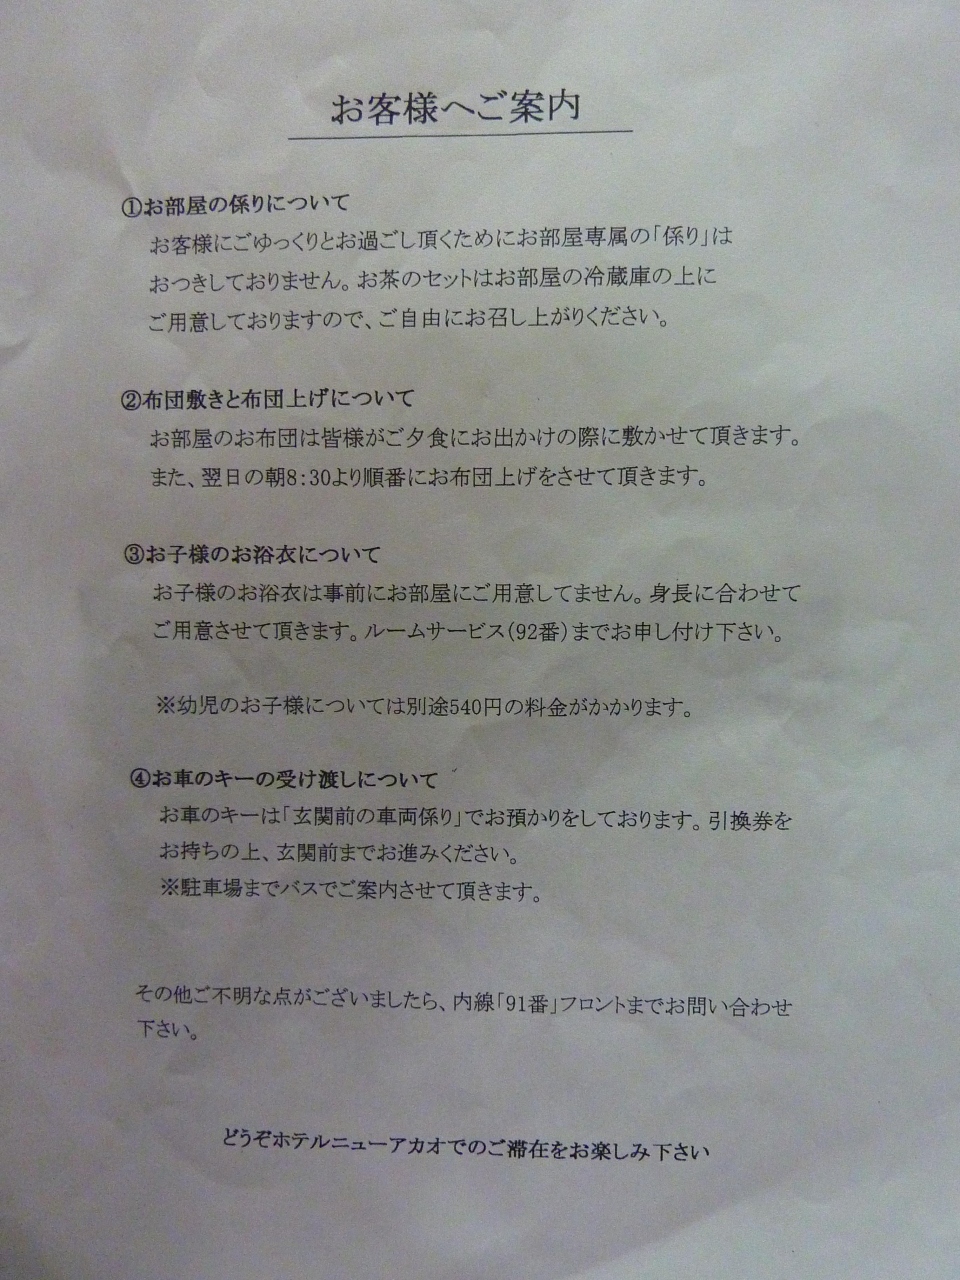 お客様へご案内
①お部屋の係りについて
お客様にごゆっくりとお過ごし頂くためにお部屋専属の「係り」は
おつきしておりません。お茶のセットはお部屋の冷蔵庫の上に
ご用意しておりますので、ご自由にお召し上がりください。
②布団敷きと布団上げについて
お部屋のお布団は皆様がご夕食にお出かけの際に敷かせて頂きます。
また、翌日の朝8:30より順番にお布団上げをさせて頂きます。
③お子様のお浴衣について
お子様のお浴衣は事前にお部屋にご用意してません。身長に合わせて
ご用意させて頂きます。ルームサービス(92番)までお申し付け下さい。
※幼児のお子様については別途540円の料金がかかります。
④お車のキーの受け渡しについて
お車のキーは「玄関前の車両係り」でお預かりをしております。引換券を
お持ちの上、玄関前までお進みください。
※駐車場までバスでご案内させて頂きます。
その他ご不明な点がございましたら、内線「91番」フロントまでお問い合わせ
下さい。
どうぞホテルニューアカオでのご滞在をお楽しみ下さい